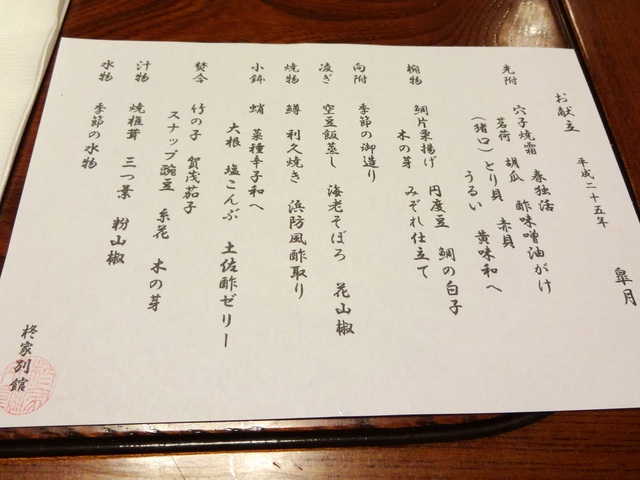 お献立 平成二十五年 皐月
先附 穴子焼霜 春独活 酢味噌油がけ
茗荷 胡瓜
(猪口)とり貝 赤貝
うるい 黄味和へ
椀物 鯛片栗揚げ 円度豆 鯛の白子
木の芽 みぞれ仕立て
向附 季節の御造り
凌ぎ 空豆飯蒸し 海老そぼろ 花山椒
焼物 鱒 利久焼き 浜防風酢取り
小鉢 蛸 菜種辛子和へ
大根 塩こんぶ 土佐酢ゼリー
焚合 竹の子 賀茂茄子
スナップ豌豆 糸花 木の芽
汁物 焼椎茸 三つ葉 粉山椒
水物 季節の水物
柊家別館